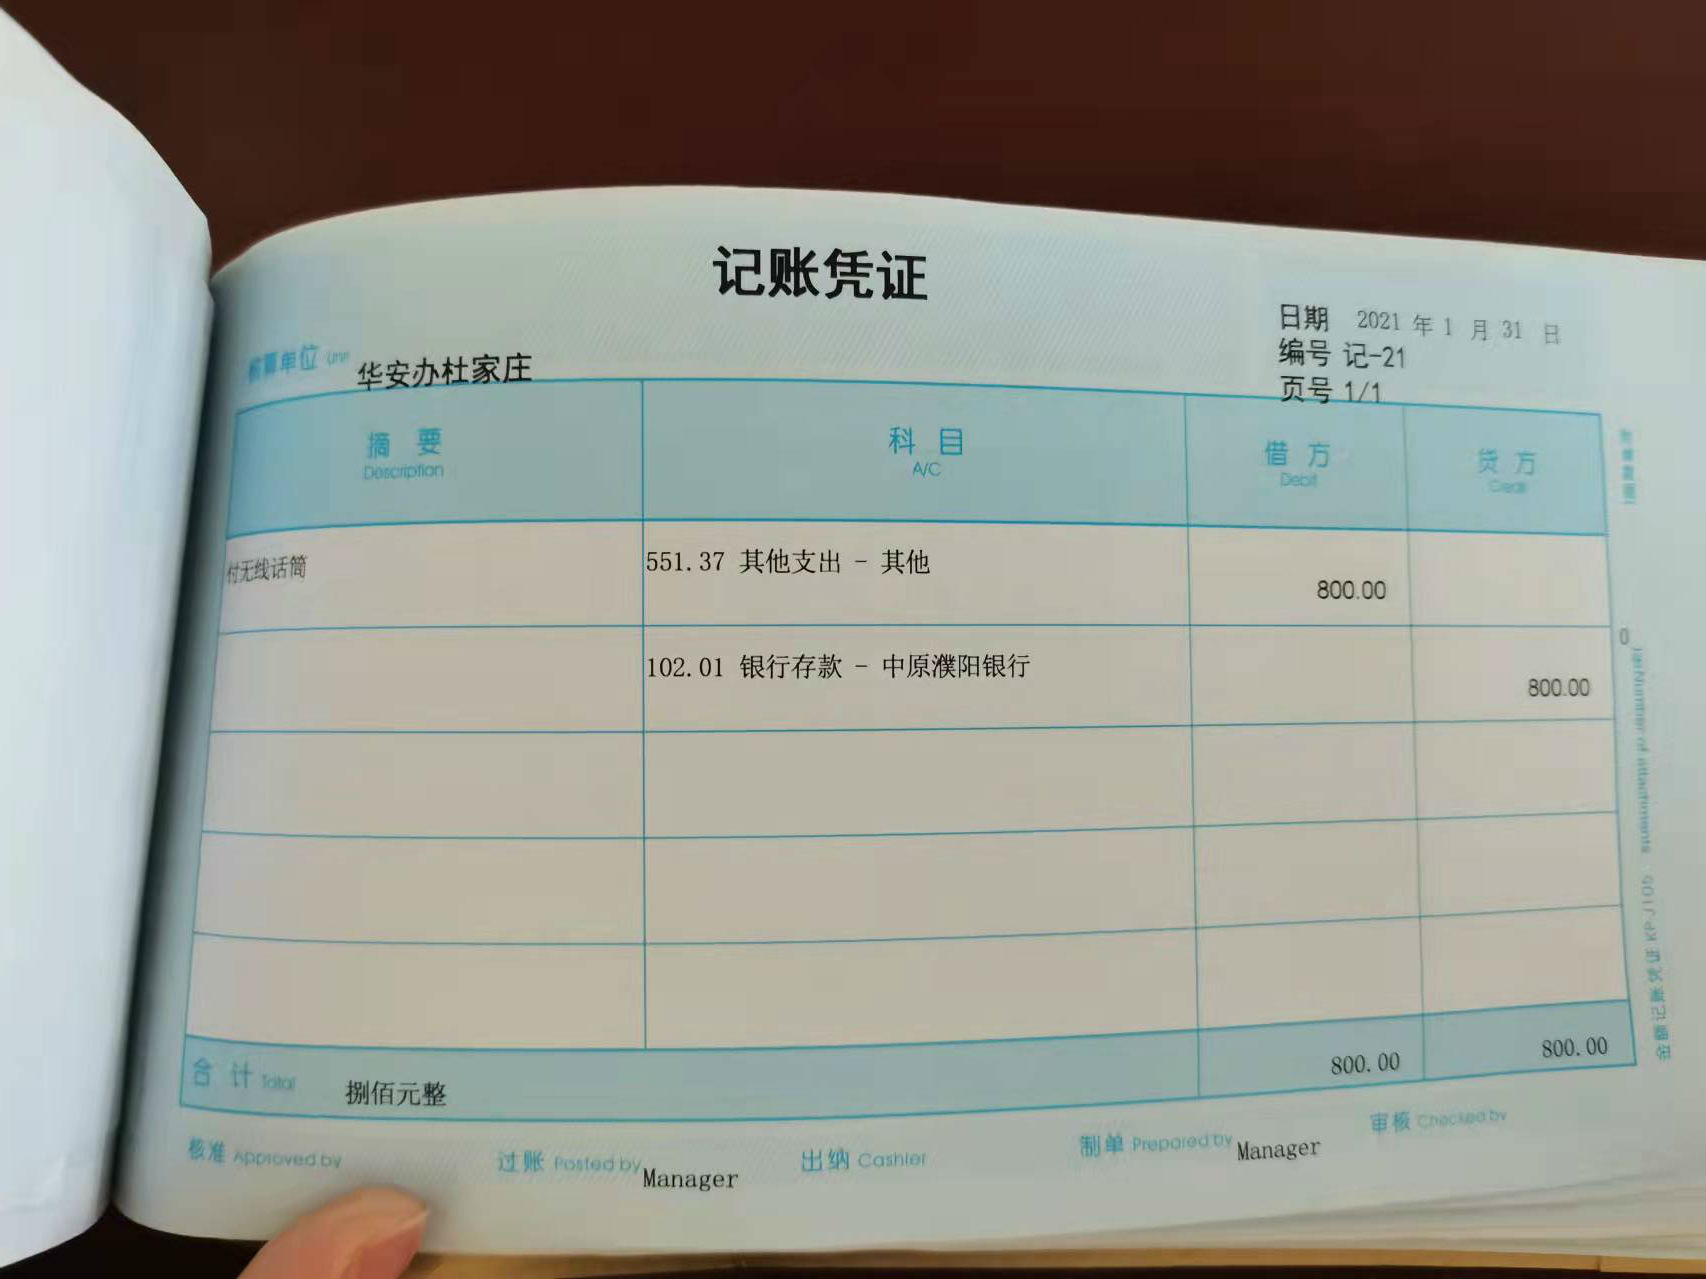 记账凭证
日期 2021 年 1 月 31 日
编号 记-21
页号 1/1
核算单位 Unit 华安办杜家庄
摘 要 科 目 借 方 贷 方
Description A/C Debit Credit
付无线话筒 551.37 其他支出 - 其他 800.00
102.01 银行存款 - 中原濮阳银行 800.00
合 计 Total 捌佰元整 800.00 800.00
核准 Approved by 过账 Posted by Manager 出纳 Cashier 制单 Prepared by Manager 审核 Checked by
附单数据
0
Number of attachments
金额记账凭证 KPJ105